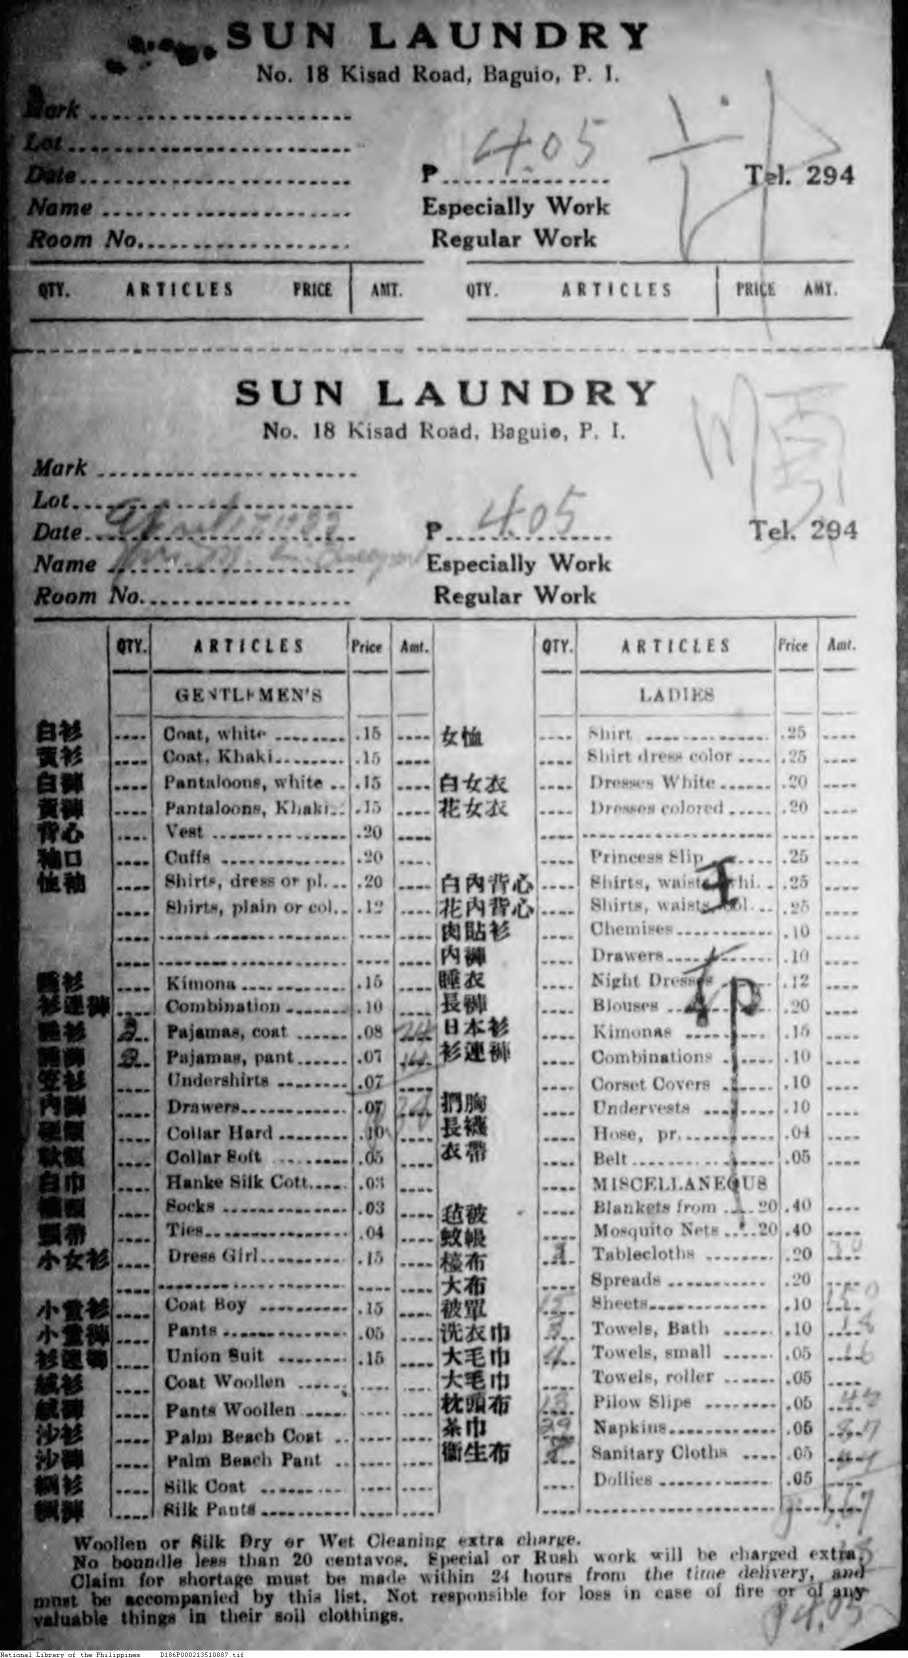 SUN LAUNDRY
No. 18 Kisad Road, Baguio, P. I.
Mark
Lot
Date
₱ 4.05
Tel. 294
Name
Especially Work
Room No.
Regular Work
QTY. ARTICLES PRICE AMT. QTY. ARTICLES PRICE AMT.
SUN LAUNDRY
順
No. 18 Kisad Road, Baguio, P. I.
Mark
Lot
Date April
₱ 4.05
Tel. 294
Name
Especially Work
Room No.
Regular Work
QTY. ARTICLES Price Amt.
GENTLEMEN'S
白衫 Coat, white .15
黃衫 Coat, Khaki .15
白褲 Pantaloons, white .15
黃褲 Pantaloons, Khaki .15
背心 Vest .20
袖口 Cuffs .20
恤袖 Shirts, dress or pl. .20
Shirts, plain or col. .12
睡衫 Kimona .15
衫連褲 Combination .10
睡衫 3 Pajamas, coat .08 24
睡褲 2 Pajamas, pant .07 14
笠衫 Undershirts .07
內褲 Drawers .07
硬領 Collar Hard .10
軟領 Collar Soft .05
白巾 Hanke Silk Cott. .03
Socks .03
頸帶 Ties .04
小女衫 Dress Girl .15
小童衫 Coat Boy .15
小童褲 Pants .05
衫連褲 Union Suit .15
絨衫 Coat Woollen
絨褲 Pants Woollen
沙衫 Palm Beach Coat
沙褲 Palm Beach Pant
綢衫 Silk Coat
綢褲 Silk Pants
QTY. ARTICLES Price Amt.
LADIES
女恤 Shirt .25
Shirt dress color .25
白女衣 Dresses White .20
花女衣 Dresses colored .20
Princess Slip .25
白內背心 Shirts, waists whi. .25
花內背心 Shirts, waists col. .25
肉貼衫 Chemises .10
內褲 Drawers .10
睡衣 Night Dresses .12
長褲 Blouses .20
日本衫 Kimonas .15
衫連褲 Combinations .10
Corset Covers .10
捫胸 Undervests .10
長襪 Hose, pr. .04
衣帶 Belt .05
MISCELLANEOUS
毡被 Blankets from .20 .40
蚊帳 Mosquito Nets .20 .40
檯布 Tablecloths .20
大布 Spreads .20
被單 15 Sheets .10 150
洗衣巾 Towels, Bath .10
大毛巾 4 Towels, small .05
大毛巾 Towels, roller .05
枕頭布 Pilow Slips .05
茶巾 29 Napkins .05
衛生布 Sanitary Cloths .05
Dollies .05
Woollen or Silk Dry or Wet Cleaning extra charge.
No boundle less than 20 centavos. Special or Rush work will be charged extra.
Claim for shortage must be made within 24 hours from the time delivery, and
must be accompanied by this list. Not responsible for loss in case of fire or of any
valuable things in their soil clothings.
₱4.05
National Library of the Philippines D186P000213510887.tif